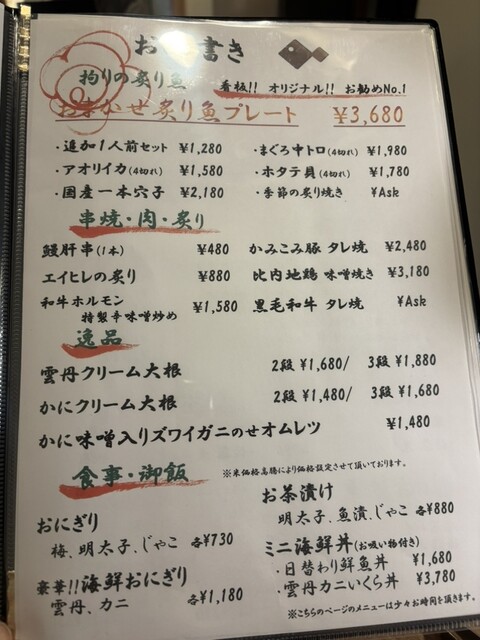 お 書き
拘りの炙り魚
看板!! オリジナル!! お勧めNo.1
おまかせ炙り魚プレート ¥3,680
・追加1人前セット ¥1,280
・まぐろ中トロ(4切れ) ¥1,980
・アオリイカ(4切れ) ¥1,580
・ホタテ貝(4切れ) ¥1,780
・国産一本穴子 ¥2,180
・季節の炙り焼き ¥Ask
串焼・肉・炙り
鰻肝串(1本) ¥480
かみこみ豚 タレ焼 ¥2,480
エイヒレの炙り ¥880
比内地鶏 味噌焼き ¥3,180
和牛ホルモン
特製辛味噌炒め ¥1,580
黒毛和牛 タレ焼 ¥Ask
逸品
雲丹クリーム大根 2段 ¥1,680/ 3段 ¥1,880
かにクリーム大根 2段 ¥1,480/ 3段 ¥1,680
かに味噌入りズワイガニのせオムレツ ¥1,480
食事・御飯
※米価格高騰により価格設定させて頂いております。
おにぎり
梅、明太子、じゃこ 各¥730
豪華!!海鮮おにぎり
雲丹、カニ 各¥1,180
お茶漬け
明太子、魚漬、じゃこ 各¥880
ミニ海鮮丼(お吸い物付き)
・日替わり鮮魚丼 ¥1,680
・雲丹カニいくら丼 ¥3,780
※こちらのページのメニューは少々お時間を頂きます。